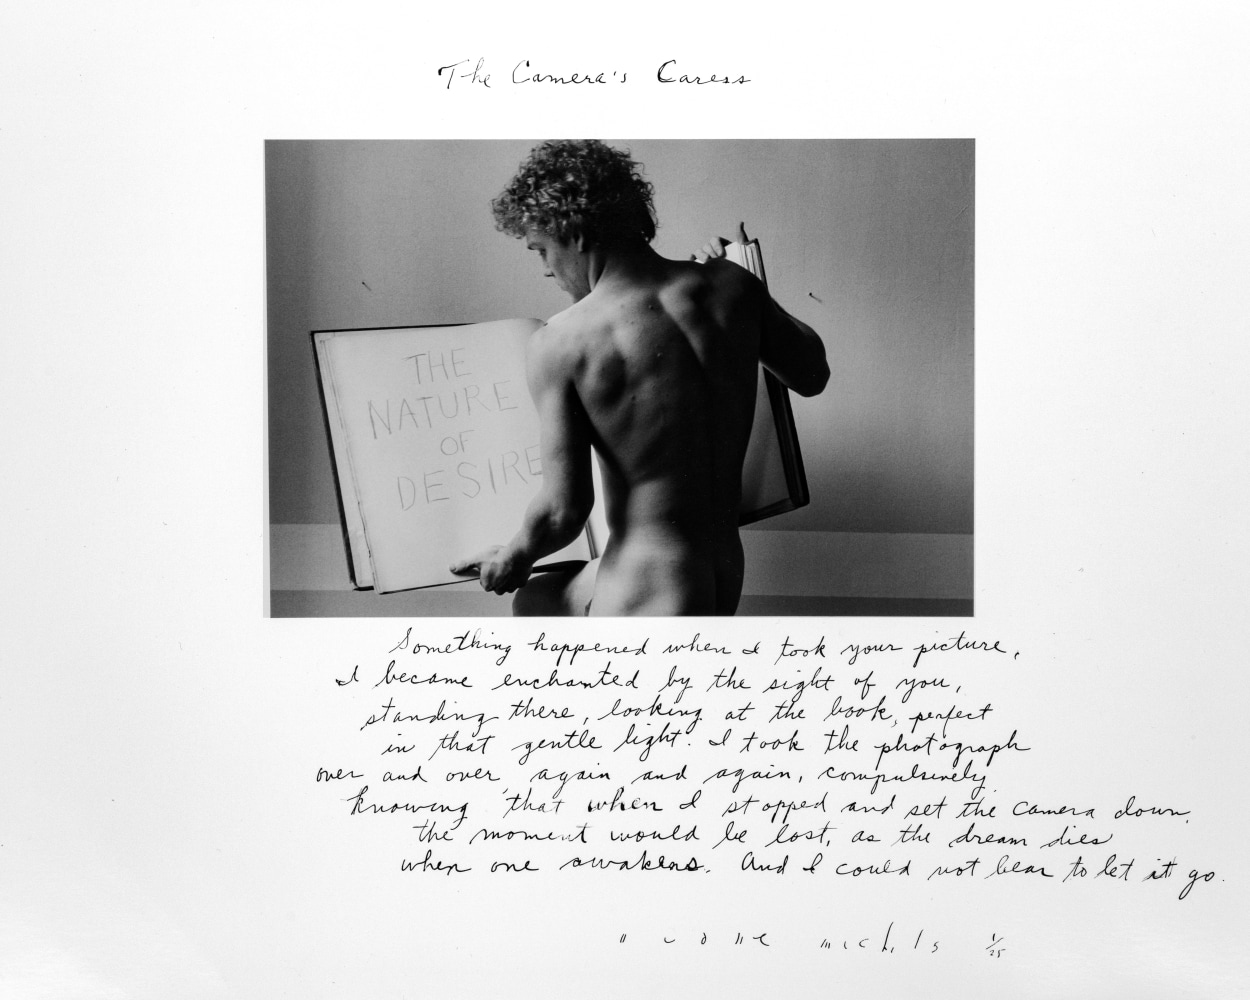 The Camera's Caress
THE
NATURE
OF
DESIRE
Something happened when I took your picture,
I became enchanted by the sight of you,
standing there, looking at the book, perfect
in that gentle light. I took the photograph
over and over again and again, compulsively
knowing that when I stopped and set the camera down,
the moment would be lost, as the dream dies
when one awakens. And I could not bear to let it go.
michals 1/25